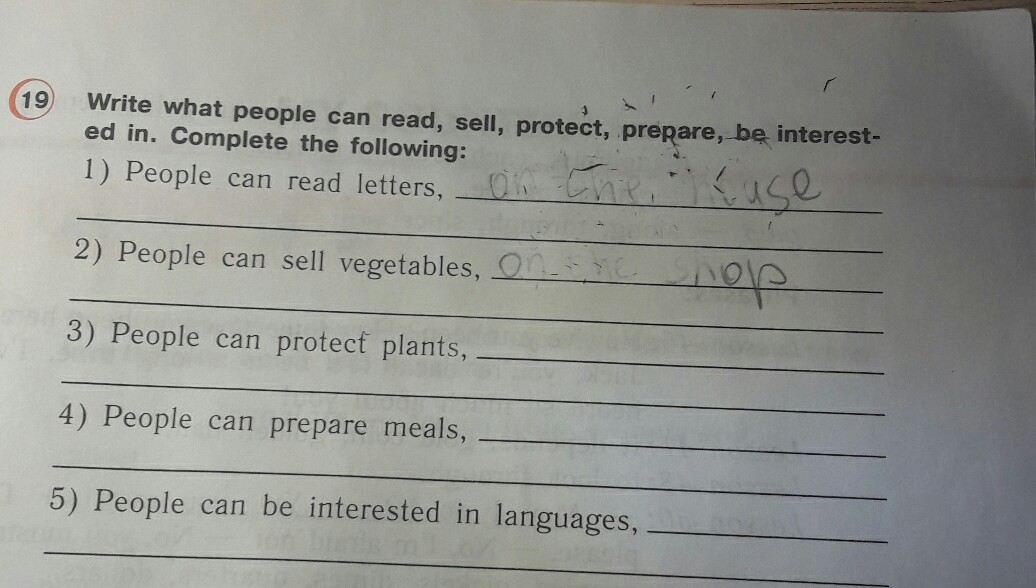 19 Write what people can read, sell, protect, prepare, be interest-
ed in. Complete the following:
1) People can read letters, on the
2) People can sell vegetables, on the shop
3) People can protect plants,
4) People can prepare meals,
5) People can be interested in languages,